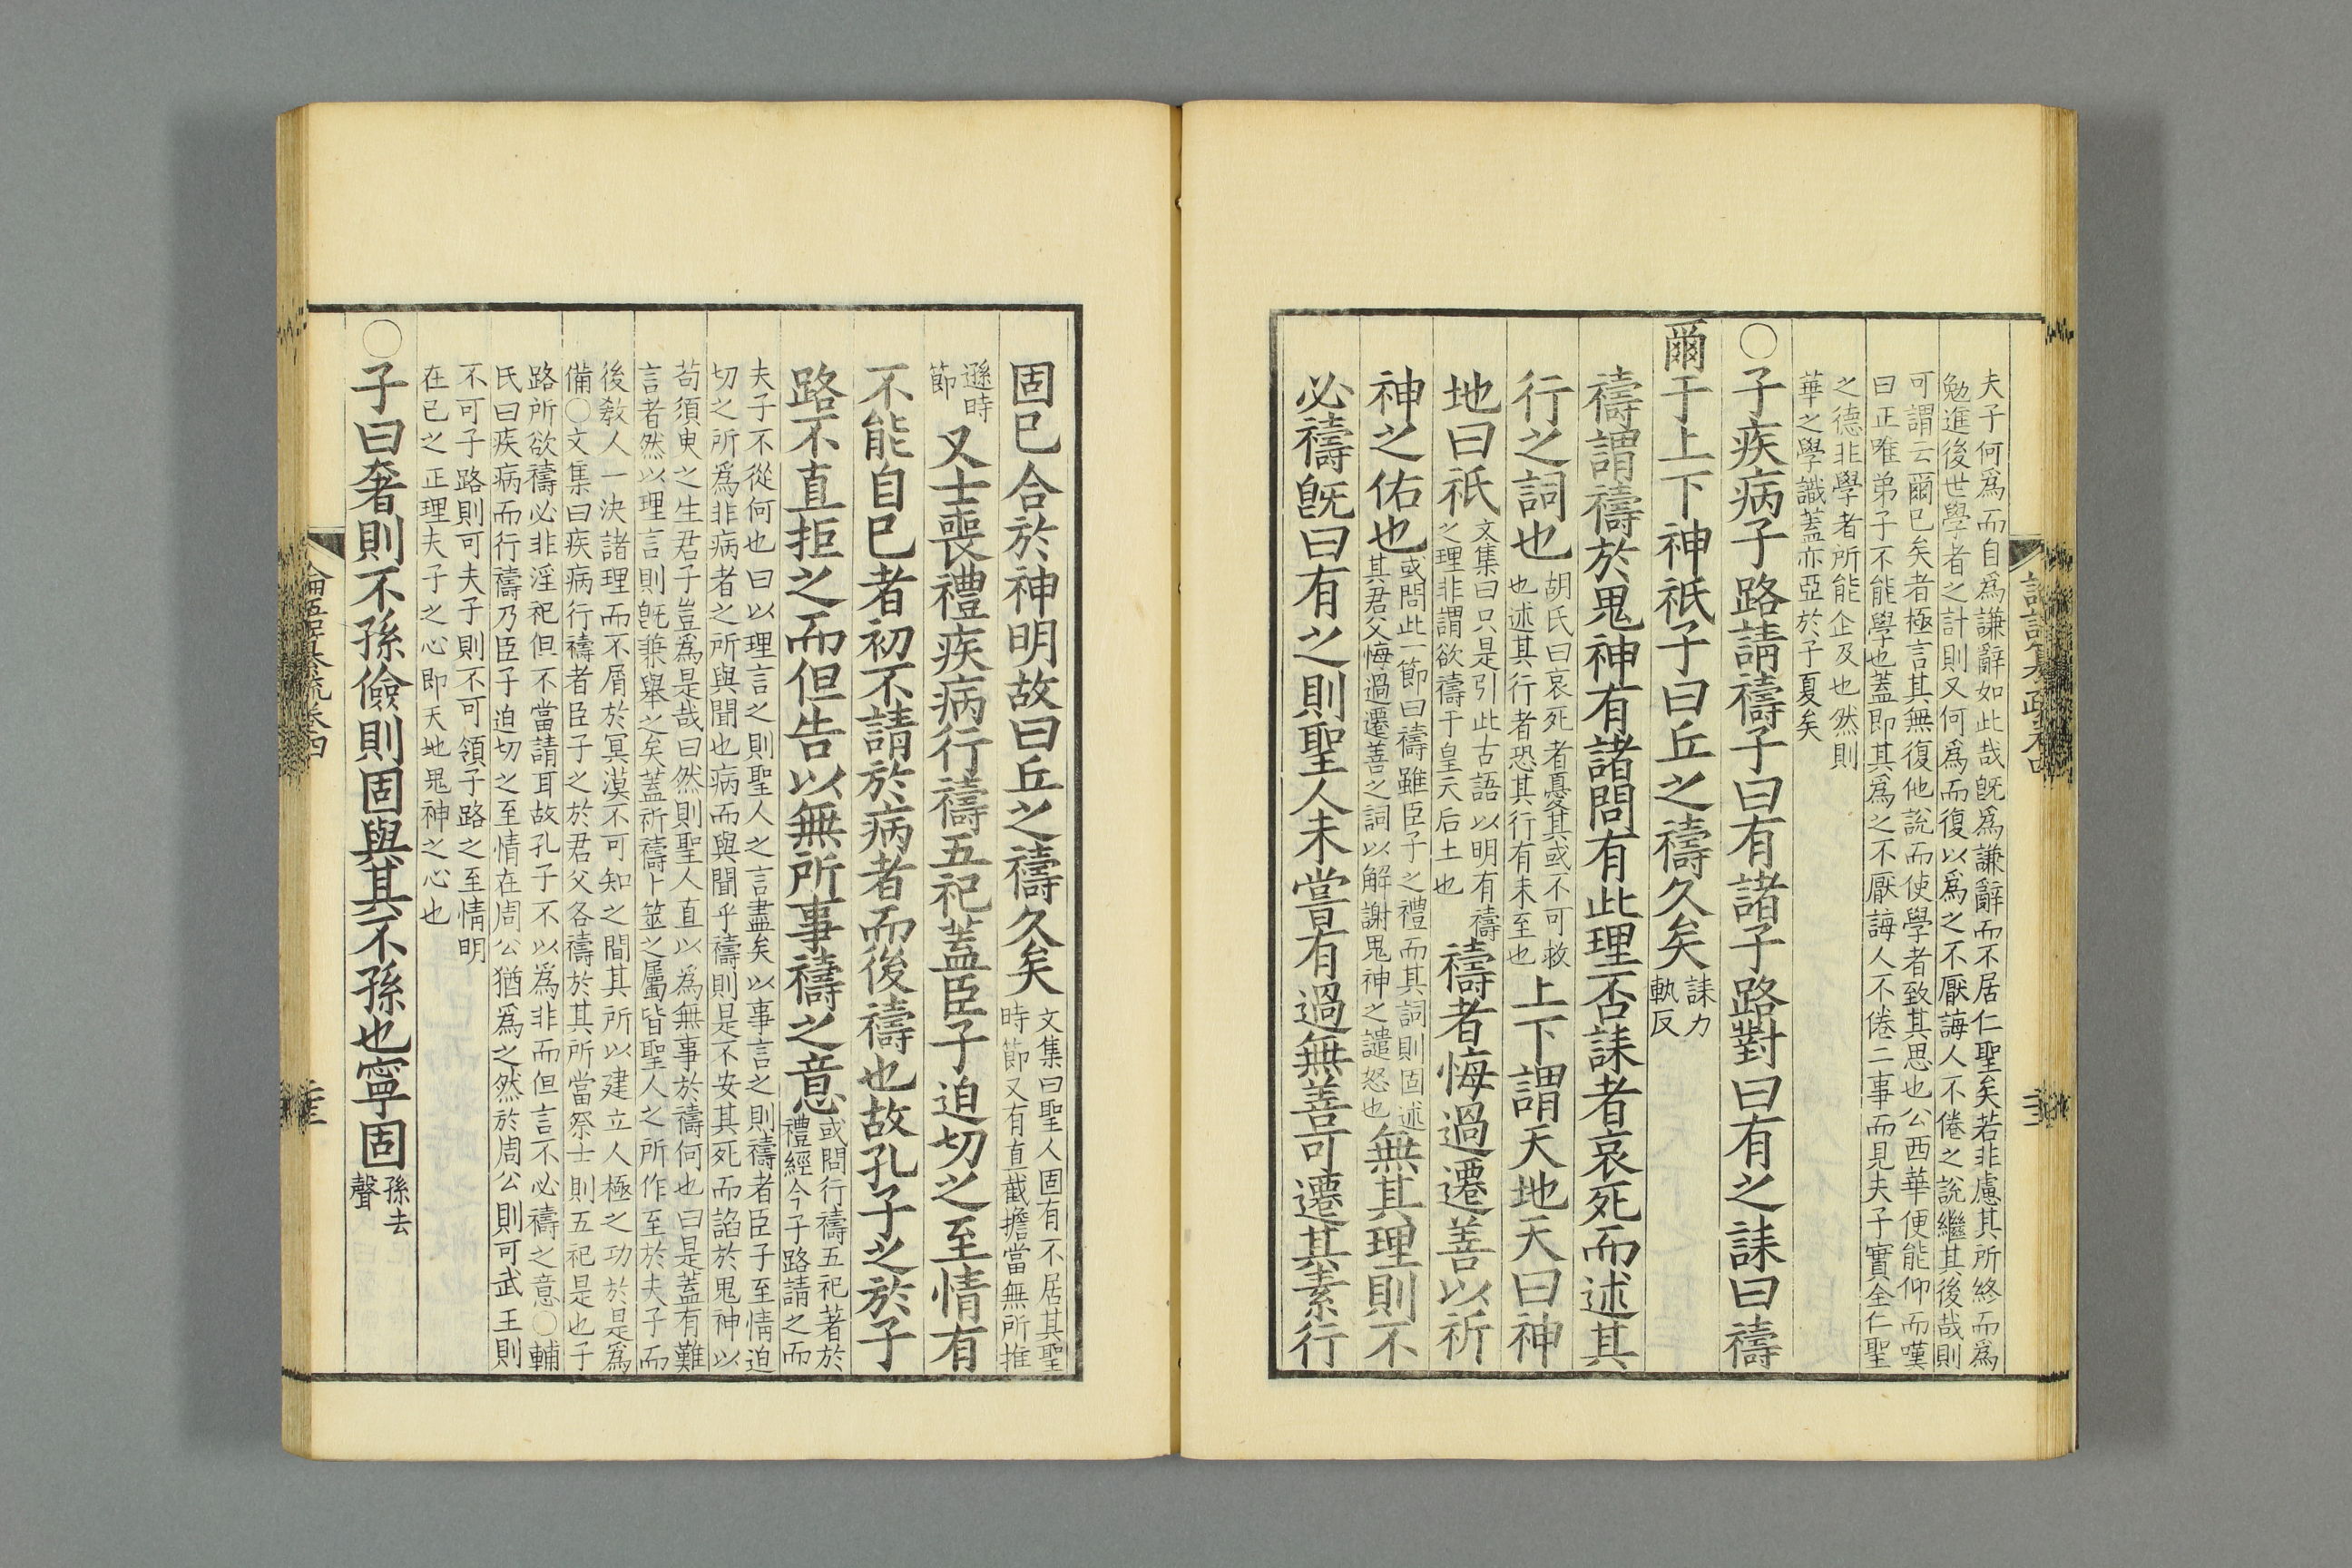 夫子何爲而自爲謙辭如此哉旣爲謙辭而不居仁聖矣若非慮其所終而爲
勉進後世學者之計則又何爲而復以爲之不厭誨人不倦之說繼其後哉則
可謂云爾已矣者極言其無復他說而使學者致其思也公西華便能仰而嘆
曰正唯弟子不能學也蓋即其爲之不厭誨人不倦二事而見夫子實全仁聖
之德非學者所能企及也然則
華之學識蓋亦亞於子夏矣
○子疾病子路請禱子曰有諸子路對曰有之誄曰禱
爾于上下神祇子曰丘之禱久矣
誄力
軌反
禱謂禱於鬼神有諸問有此理否誄者哀死而述其
行之詞也
胡氏曰哀死者憂其或不可救
也述其行者恐其行有未至也
上下謂天地天曰神
地曰祇
文集曰只是引此古語以明有禱
之理非謂欲禱于皇天后土也
禱者悔過遷善以祈
神之佑也
或問此一節曰禱雖臣子之禮而其詞則固述
其君父悔過遷善之詞以解謝鬼神之譴怒也
無其理則不
必禱旣曰有之則聖人未嘗有過無善可遷其素行
固已合於神明故曰丘之禱久矣
文集曰聖人固有不居其聖
時節又有直截擔當無所推
遜時
節
又士喪禮疾病行禱五祀蓋臣子迫切之至情有
不能自已者初不請於病者而後禱也故孔子之於子
路不直拒之而但告以無所事禱之意
或問行禱五祀著於
禮經今子路請之而
夫子不從何也曰以理言之則聖人之言盡矣以事言之則禱者臣子至情迫
切之所爲非病者之所與聞也病而與聞乎禱則是不安其死而諂於鬼神以
苟須臾之生君子豈爲是哉曰然則聖人直以爲無事於禱何也曰是蓋有難
言者然以理言則旣兼舉之矣蓋祈禱卜筮之屬皆聖人之所作至於夫子而
後敎人一決諸理而不屑於冥漠不可知之間其所以建立人極之功於是爲
備○文集曰疾病行禱者臣子之於君父各禱於其所當祭士則五祀是也子
路所欲禱必非淫祀但不當請耳故孔子不以爲非而但言不必禱之意○輔
氏曰疾病而行禱乃臣子迫切之至情在周公猶爲之然於周公則可武王則
不可子路則可夫子則不可領子路之至情明
在已之正理夫子之心即天地鬼神之心也
○子曰奢則不孫儉則固與其不孫也寧固
孫去
聲